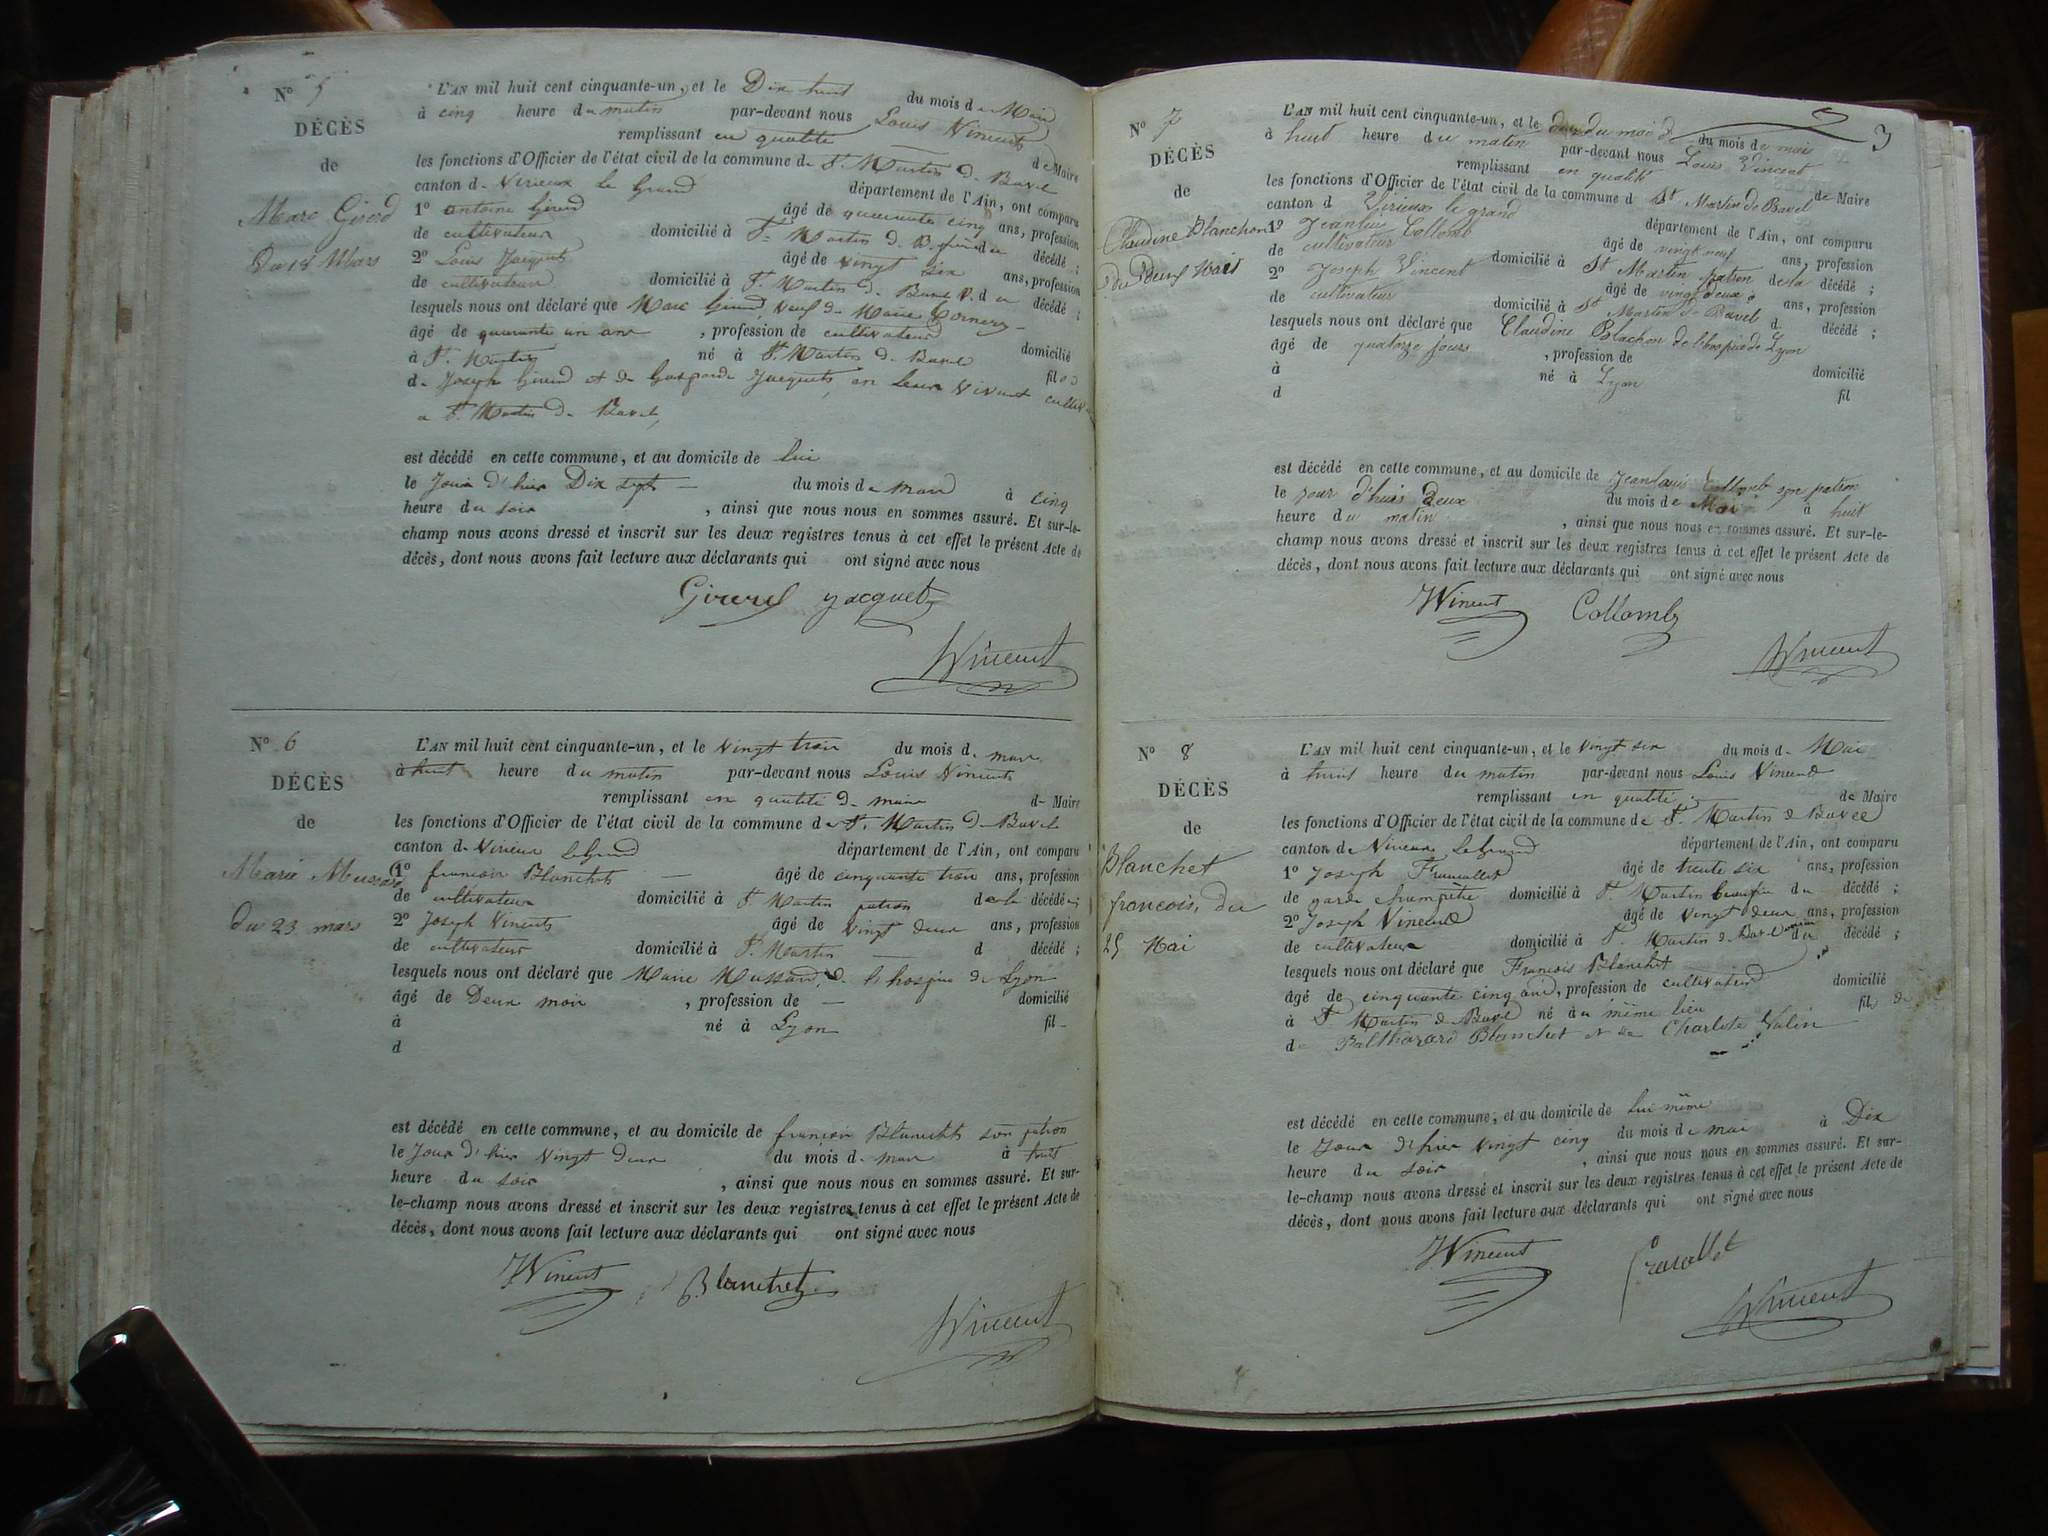 N° 5
DÉCÈS
de
Marc Girerd
Du 18 Mars
L'AN mil huit cent cinquante-un, et le Dix huit du mois de Mars
à cinq heure du matin par-devant nous Louis Vincent
remplissant en qualité de Maire
les fonctions d'Officier de l'état civil de la commune de St. Martin de Bavel
canton de Virieux le Grand département de l'Ain, ont comparu
1° antoine Girerd âgé de quarante cinq ans, profession
de cultivateur domicilié à St. Martin de B. du décédé ;
2° Louis Jacquet âgé de vingt six ans, profession
de cultivateur domicilié à St. Martin de Bavel du décédé ;
lesquels nous ont déclaré que Marc Girerd, veuf de Marie
âgé de quarante un ans , profession de cultivateur domicilié
à St. Martin né à St. Martin de Bavel fils
de Joseph Girerd et de Gasparde Jacquet, en leur vivant
a St. Martin de Bavel,
est décédé en cette commune, et au domicile de lui
le Jour d'hier Dix sept du mois de mars à cinq
heure du soir , ainsi que nous nous en sommes assuré. Et sur-le-
champ nous avons dressé et inscrit sur les deux registres tenus à cet effet le présent Acte de
décès, dont nous avons fait lecture aux déclarants qui ont signé avec nous
Girerd Jacquet
Vincent
N° 6
DÉCÈS
de
Marie Mussard
Du 23 mars
L'AN mil huit cent cinquante-un, et le vingt trois du mois de mars
à huit heure du matin par-devant nous Louis Vincent
remplissant en qualité de maire de Maire
les fonctions d'Officier de l'état civil de la commune de St. Martin de Bavel
canton de Virieux le Grand département de l'Ain, ont comparu
1° francois Blanchet âgé de cinquante trois ans, profession
de cultivateur domicilié à St. Martin patron de la décédé ;
2° Joseph Vincent âgé de vingt deux ans, profession
de cultivateur domicilié à St. Martin d décédé ;
lesquels nous ont déclaré que Marie Mussard, de l'hospice de Lyon
âgé de Deux mois , profession de domicilié
à né à Lyon fil
d
est décédé en cette commune, et au domicile de francois Blanchet son patron
le Jour d'hier vingt deux du mois de mars à huit
heure du soir , ainsi que nous nous en sommes assuré. Et sur-
le-champ nous avons dressé et inscrit sur les deux registres tenus à cet effet le présent Acte de
décès, dont nous avons fait lecture aux déclarants qui ont signé avec nous
JVincent Blanchet
Vincent
3
N° 7
DÉCÈS
de
Claudine Blanchon
du deux Mais
L'AN mil huit cent cinquante-un, et le du mois de mai
à huit heure du matin par-devant nous Louis Vincent
remplissant en qualité de Maire
les fonctions d'Officier de l'état civil de la commune d St Martin de Bavel
canton d Virieux le grand département de l'Ain, ont comparu
1° Jeanlouis Collomb âgé de vingt neuf ans, profession
de cultivateur domicilié à St Martin patron de la décédé ;
2° Joseph Vincent âgé de vingt deux ans, profession
de cultivateur domicilié à St Martin de Bavel d décédé ;
lesquels nous ont déclaré que Claudine Blachon de l'hospice de Lyon
âgé de quatorze jours , profession de domicilié
à né à Lyon fil
d
est décédé en cette commune, et au domicile de Jeanlouis Collomb son patron
le jour d'huis deux du mois de Mai à huit
heure du matin , ainsi que nous nous en sommes assuré. Et sur-le-
champ nous avons dressé et inscrit sur les deux registres tenus à cet effet le présent Acte de
décès, dont nous avons fait lecture aux déclarants qui ont signé avec nous
JVincent Collomb
Vincent
N° 8
DÉCÈS
de
Blanchet
francois, du
25 Mai
L'AN mil huit cent cinquante-un, et le vingt six du mois de Mai
à huit heure du matin par-devant nous Louis Vincent
remplissant en qualité de Maire
les fonctions d'Officier de l'état civil de la commune de St. Martin de Bavel
canton de Virieux le Grand département de l'Ain, ont comparu
1° Joseph âgé de trente six ans, profession
de garde champêtre domicilié à St. Martin du décédé ;
2° Joseph Vincent âgé de vingt deux ans, profession
de cultivateur domicilié à St. Martin de Bavel du décédé ;
lesquels nous ont déclaré que Francois Blanchet
âgé de cinquante cinq ans, profession de cultivateur domicilié
à St. Martin de Bavel né au même lieu fils de
de Balthazard Blanchet et de Charlote Valin
est décédé en cette commune, et au domicile de lui même
le Jour d'hier vingt cinq du mois de mai à Dix
heure du soir , ainsi que nous nous en sommes assuré. Et sur-
le-champ nous avons dressé et inscrit sur les deux registres tenus à cet effet le présent Acte de
décès, dont nous avons fait lecture aux déclarants qui ont signé avec nous
JVincent
Vincent